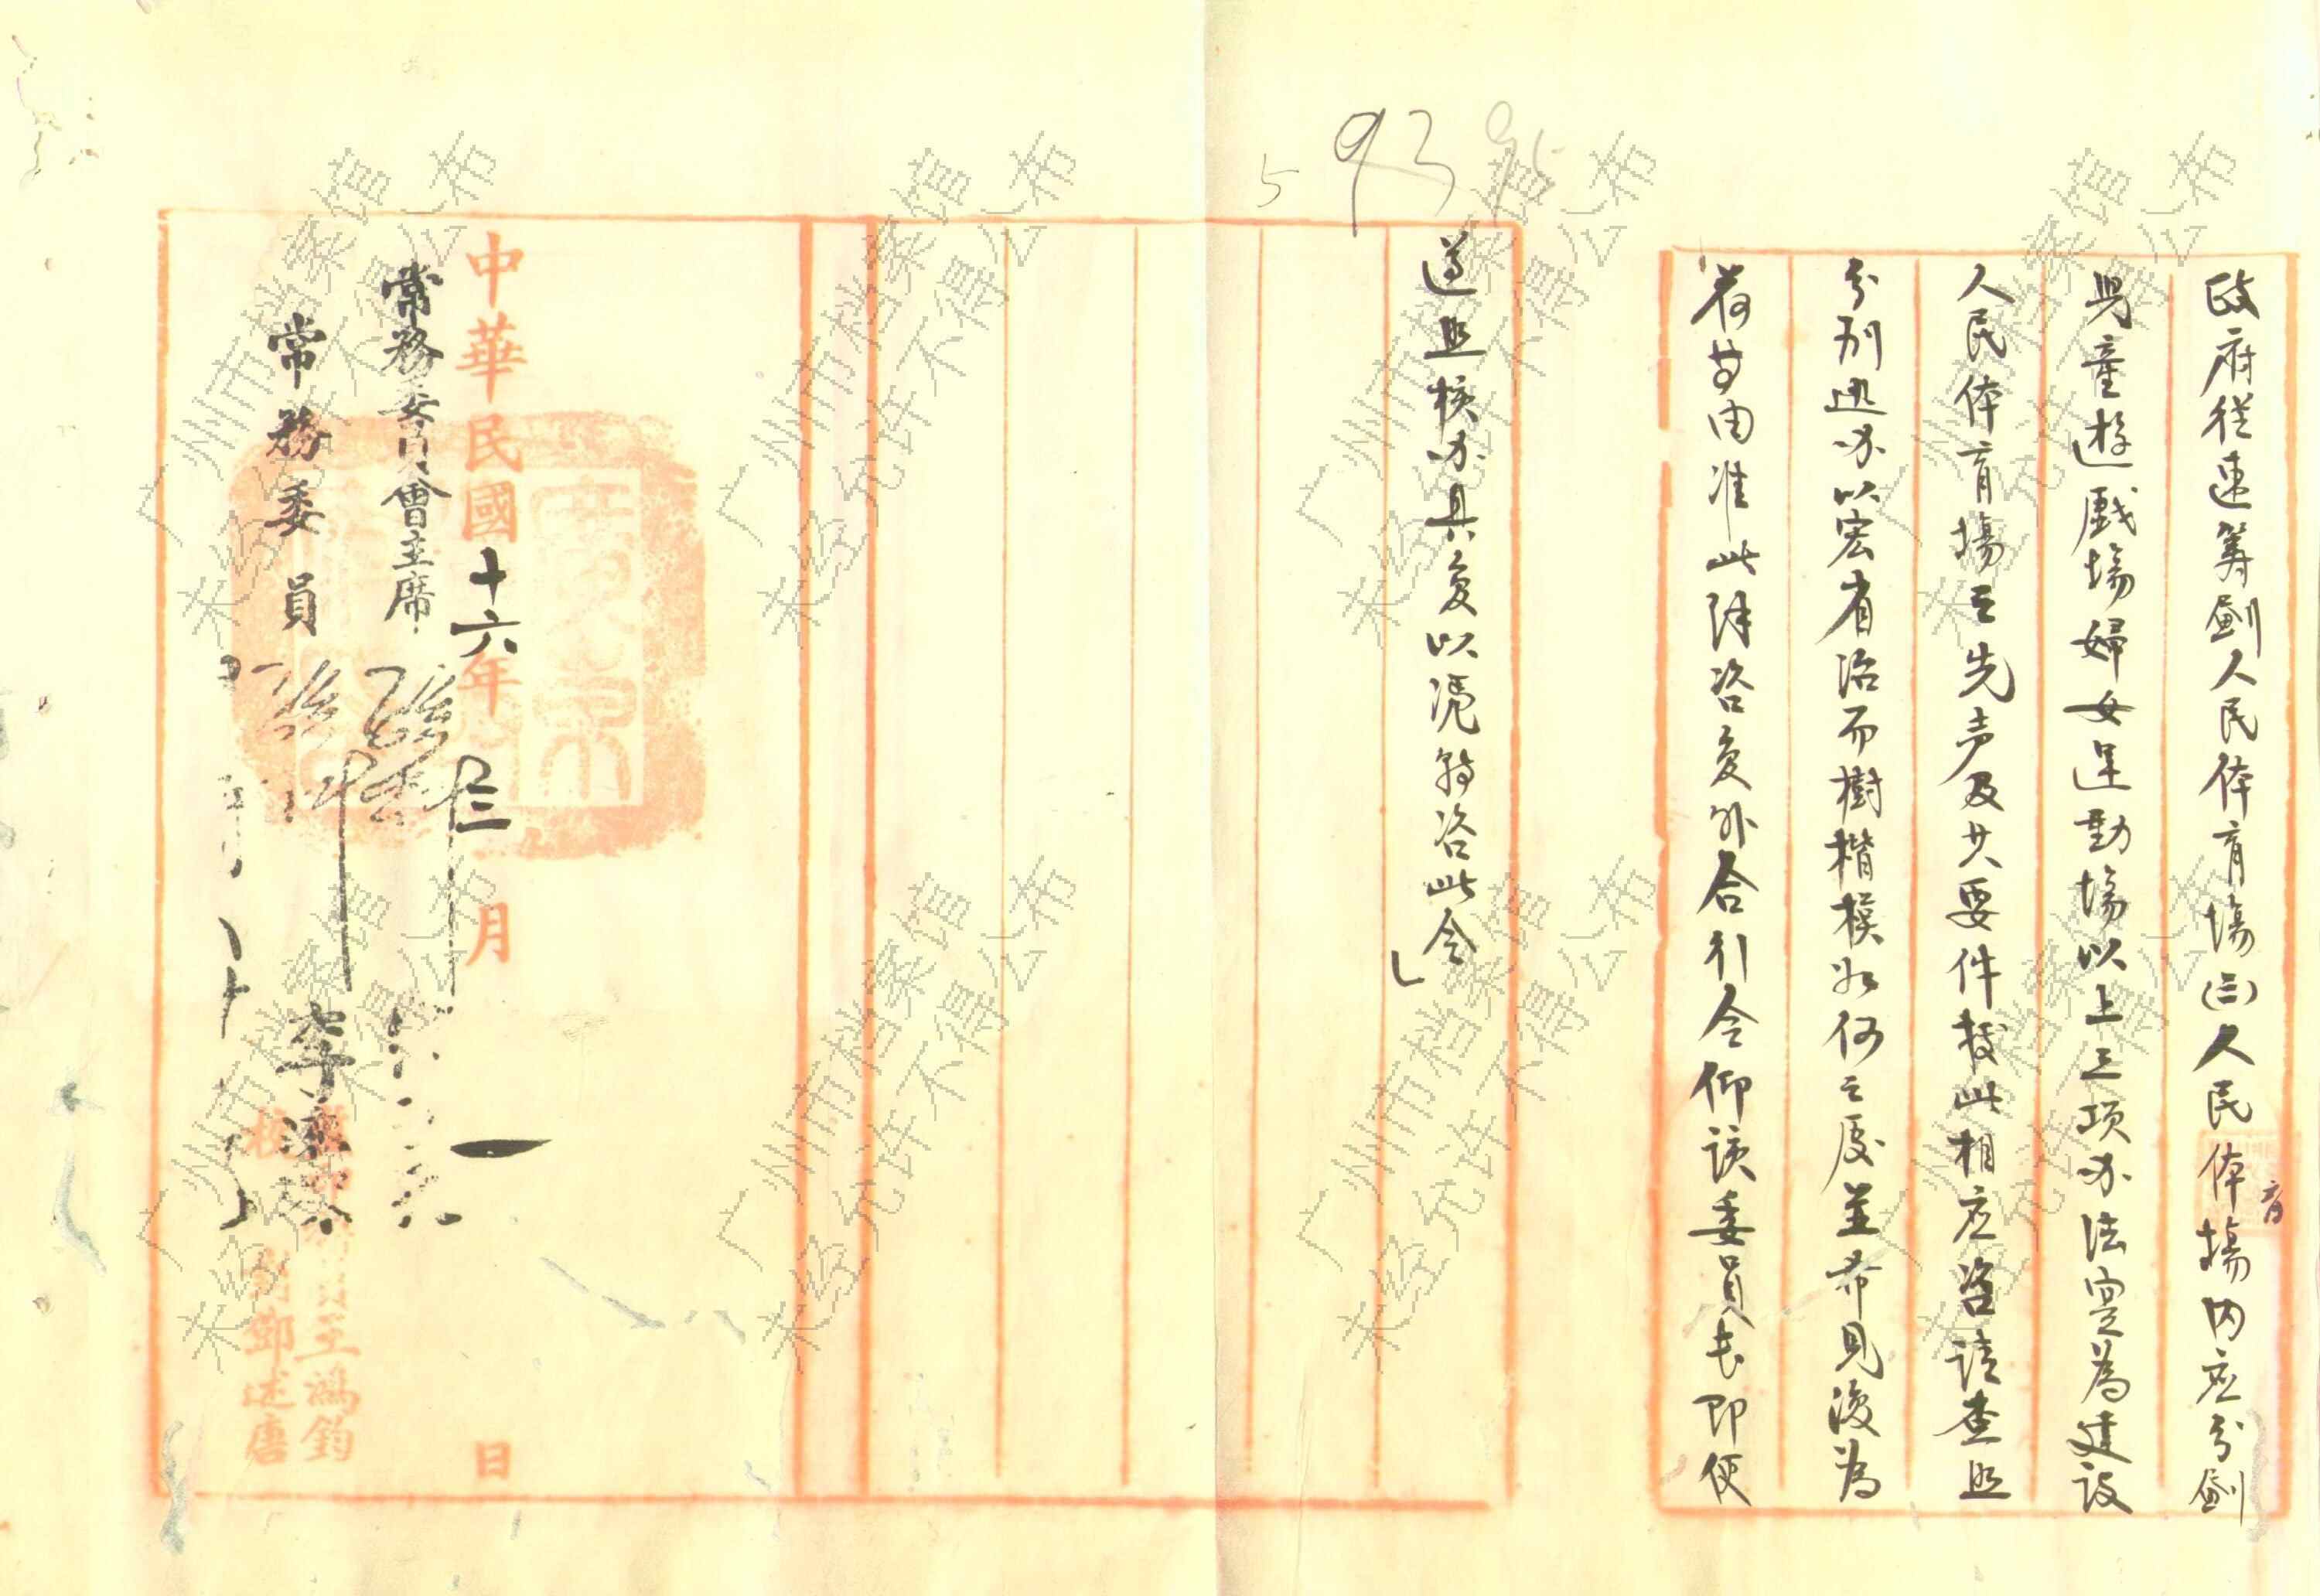 政府從速籌劃人民体育場㈢人民体育場内应分劃
兒童遊戲場婦女運動場以上三項办法实為建設
人民体育場之先声及其要件授此相应咨請查照
分别迅办以宏省治而樹楷模如何之處並希見復為
荷等由准此除咨复外合行令仰該委員長即便
遵照核办具复以凴轉咨此令」
5 93 95
中華民國十六年 月 一日
常務委員會主席
常務委員 孫科 李濟深
王鴻鈞
鄧述唐
广州市档案馆
未经允许不得公布